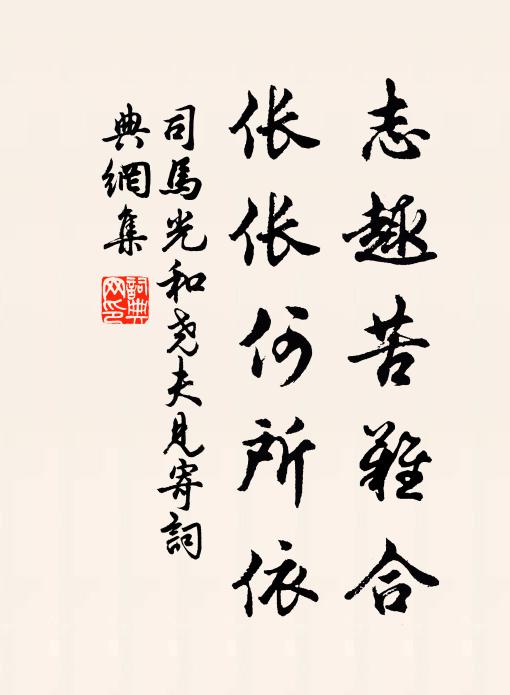 志趣苦難合
伥伥何所依
司馬光和尧夫見寄詞
典網集
詞典
网印